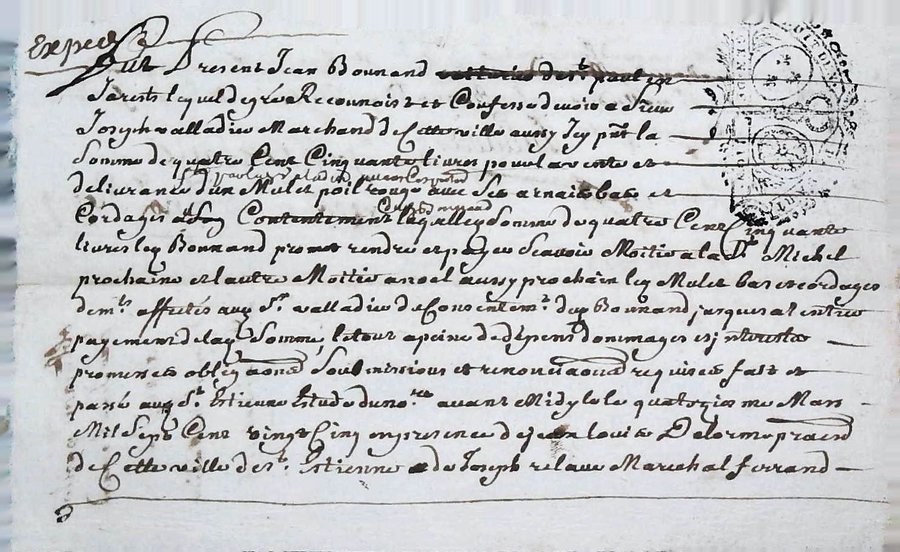 Exped
fut Present Jean Bonnand voiturier de st paul en
Jarests lequel de gré Reconnois et Confesse devoir a sieur
Joseph valladier Marchand de Cette ville aussy Icy pnt la
Somme de quatre Cent Cinquante livres pour la vente et
delivrance d'un Mulet poil rouge avec Ses arnais bas et
Cordages a Son Contentement laquelle Somme de quatre Cent Cinquante
livres led Bonnand promet rendre et payer Scavoir Moitié a la St Michel
prochaine et lautre Moitié a noel aussy prochain led Mulet bas et cordages
dem.ts affectés aud Sr valladier de Consentem.t dud Bonnand jusques a lentier
payement de lad Somme, le tout a peine de depens dommages et interests
promesses obligaons Soubmissions et renonciaons requises fait et
passé aud St Estienne Estude du no.re avant Midy le quatorzieme Mars
Mil Sept Cent vingt Cinq en presence de jean louis Delorme praen
de Cette ville de st. Estienne et de Joseph relave Marechal ferrand